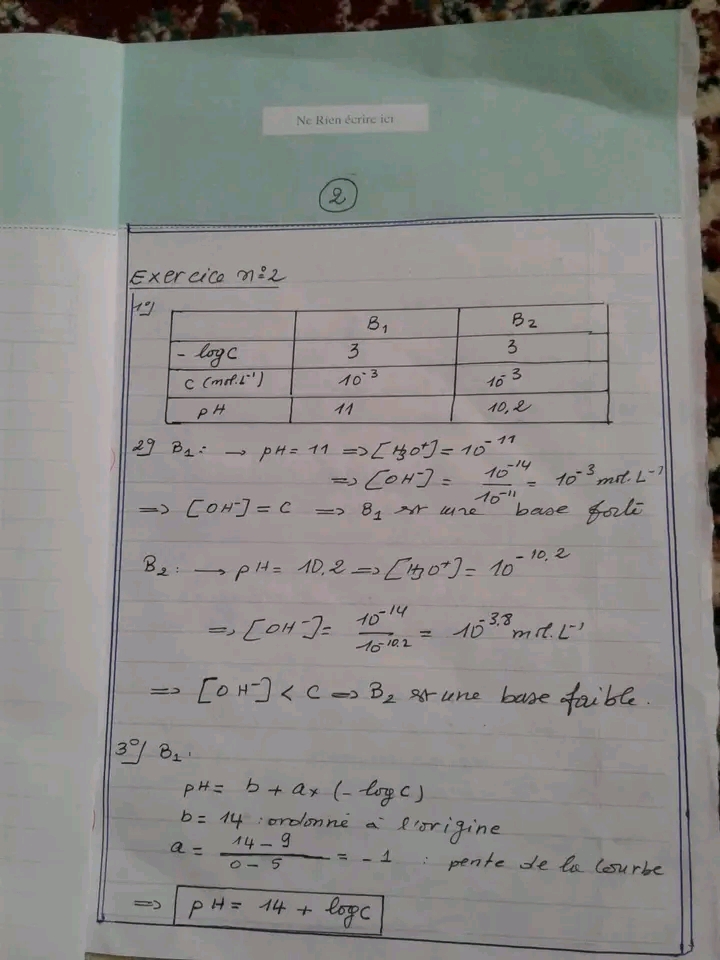 Ne Rien écrire ici
2
Exercice n°2
1°)
B₁ B₂
- logC 3 3
C (mol.L⁻¹) 10⁻³ 10⁻³
pH 11 10,2
2°) B₁ : → pH = 11 ⇒ [H₃O⁺] = 10⁻¹¹
⇒ [OH⁻] = 10⁻¹⁴/10⁻¹¹ = 10⁻³ mol.L⁻¹
⇒ [OH⁻] = C ⇒ B₁ est une base forte
B₂ : → pH = 10,2 ⇒ [H₃O⁺] = 10⁻¹⁰,²
⇒ [OH⁻] = 10⁻¹⁴/10⁻¹⁰·² = 10⁻³·⁸ mol.L⁻¹
⇒ [OH⁻] < C ⇒ B₂ est une base faible.
3°/ B₁ :
pH = b + a x (- logC)
b = 14 : ordonné à l'origine
a = 14 - 9/0 - 5 = - 1 : pente de la courbe
⇒ pH = 14 + logC